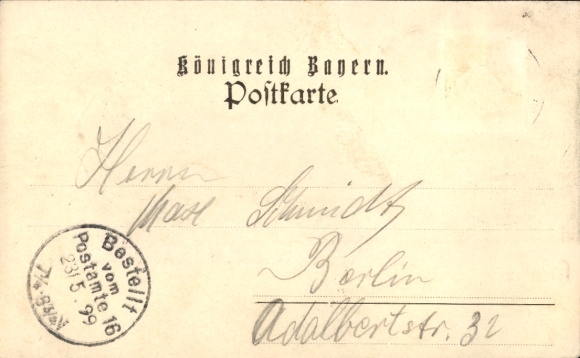 Königreich Bayern.
Postkarte.
Herrn
Max Schmidt
Berlin
Adalbertstr. 32
Bestellt
vom
Postamte 16
23/5.99